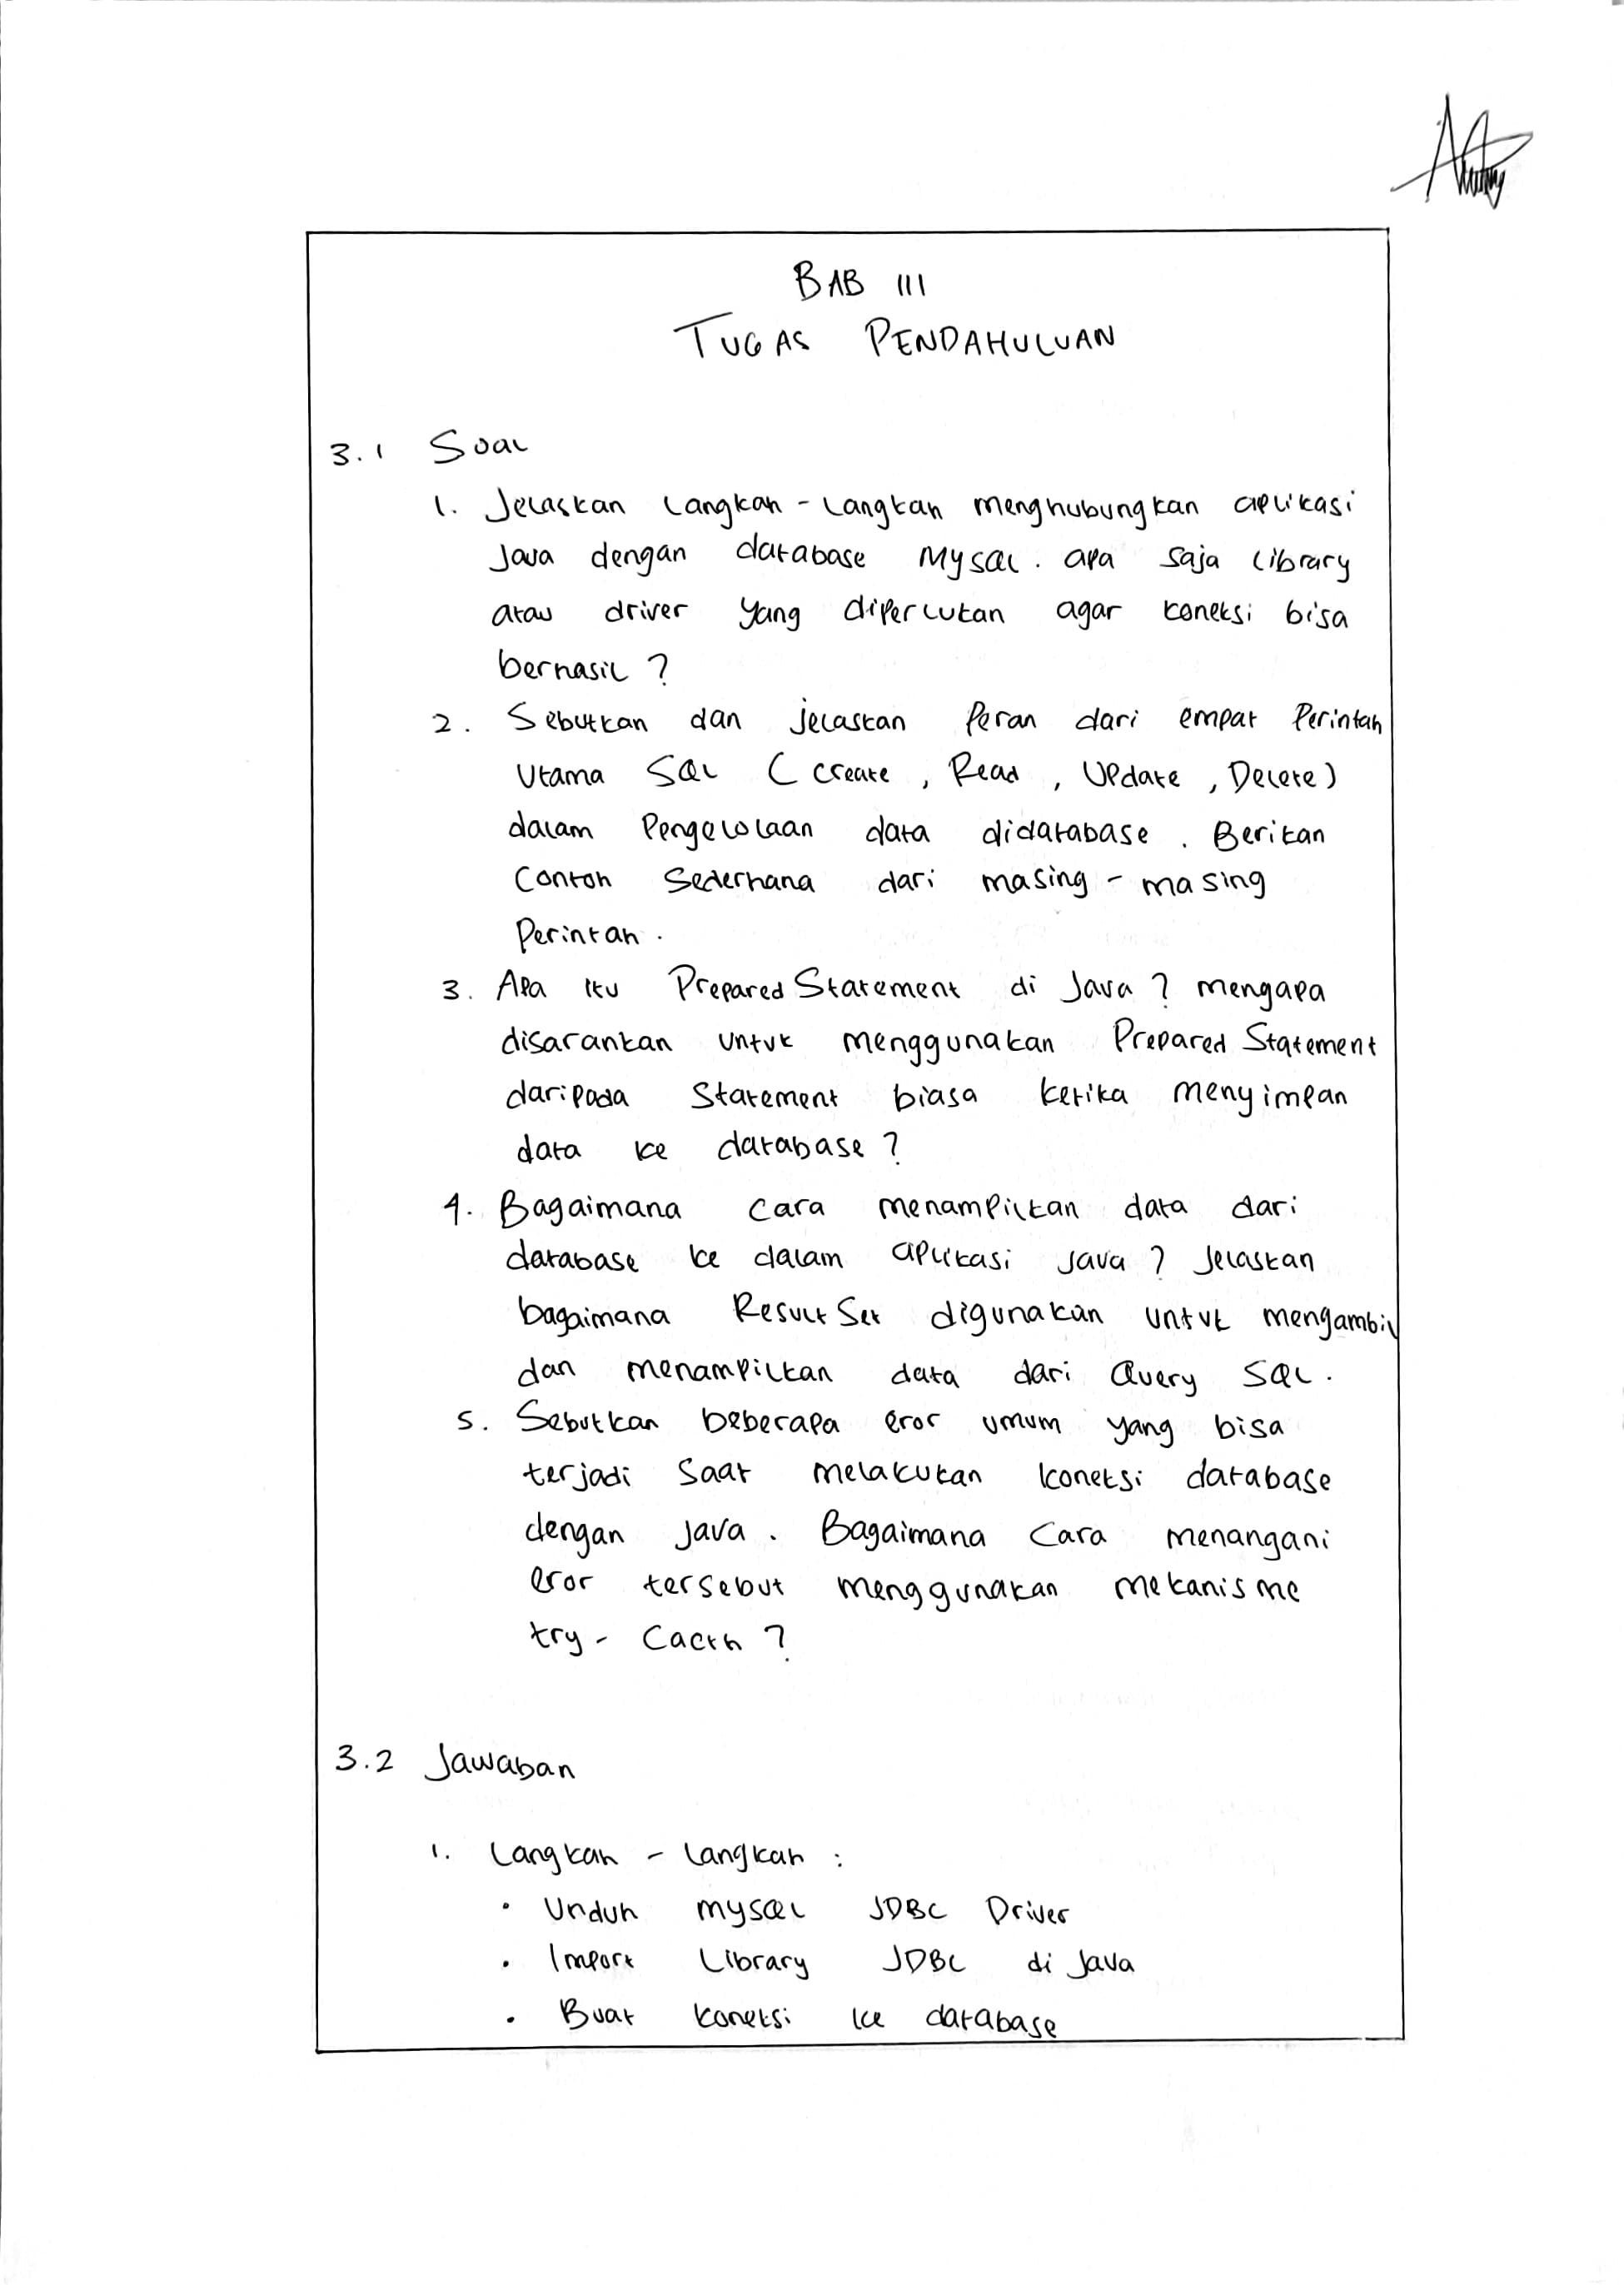 BAB III
TUGAS PENDAHULUAN
3.1 Soal
1. Jelaskan Langkah - Langkah menghubungkan aplikasi
Java dengan database Mysql. apa saja Library
atau driver yang diperlukan agar koneksi bisa
berhasil?
2. Sebutkan dan jelaskan Peran dari empat Perintah
Utama SQL (Create, Read, Update, Delete)
dalam Pengelolaan data didatabase. Berikan
Contoh Sederhana dari masing - masing
Perintah.
3. Apa itu Prepared Statement di Java? mengapa
disarankan untuk menggunakan Prepared Statement
daripada Statement biasa ketika menyimpan
data ke database?
4. Bagaimana Cara menampilkan data dari
database ke dalam aplikasi Java? Jelaskan
bagaimana Result Set digunakan untuk mengambil
dan menampilkan data dari Query SQL.
5. Sebutkan beberapa eror umum yang bisa
terjadi Saat melakukan koneksi database
dengan Java. Bagaimana Cara menangani
eror tersebut menggunakan mekanisme
try - Cacth?
3.2 Jawaban
1. Langkah - Langkah :
• Unduh mysql JDBC Driver
• Import Library JDBC di Java
• Buat koneksi ke database